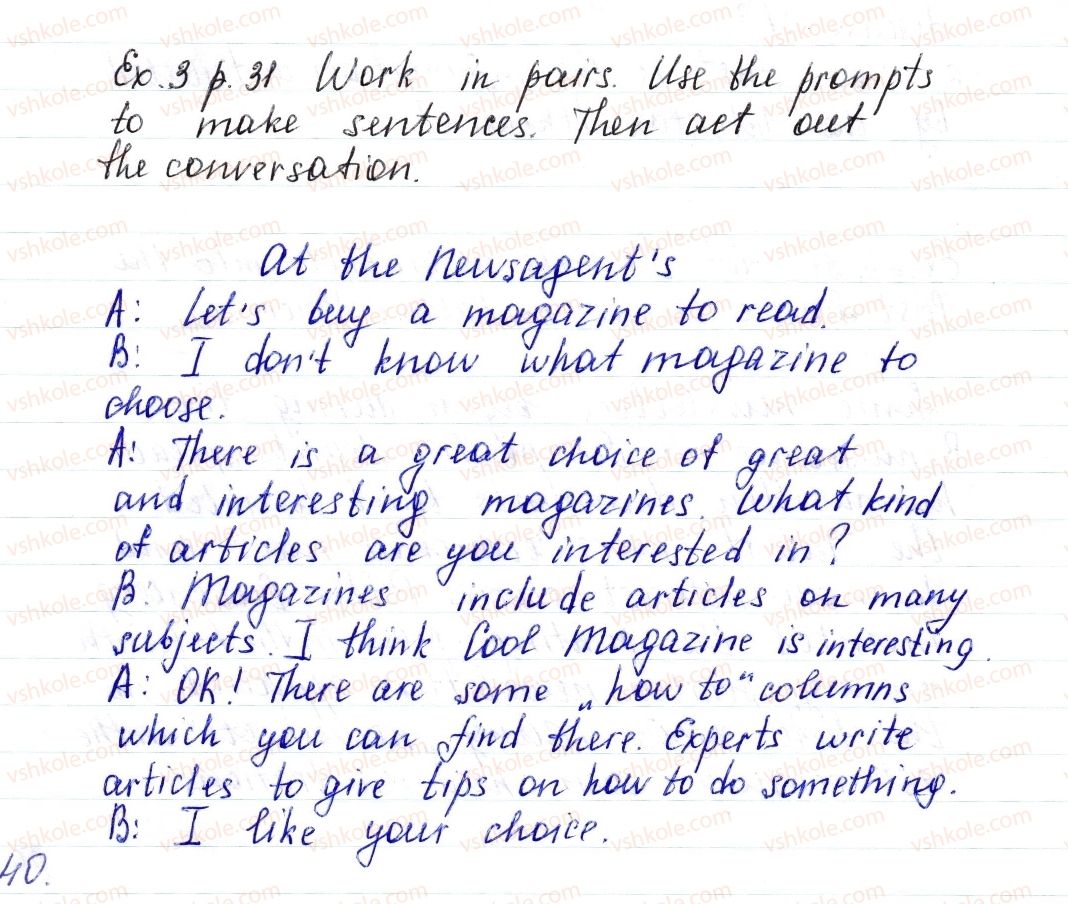 Ex. 3 p. 31 Work in pairs. Use the prompts
to make sentences. Then act out
the conversation.
At the Newsagent's
A: Let's buy a magazine to read.
B: I don't know what magazine to
choose.
A: There is a great choice of great
and interesting magazines. What kind
of articles are you interested in?
B: Magazines include articles on many
subjects. I think Cool Magazine is interesting.
A: OK! There are some „how to“ columns
which you can find there. Experts write
articles to give tips on how to do something.
B: I like your choice.
40.